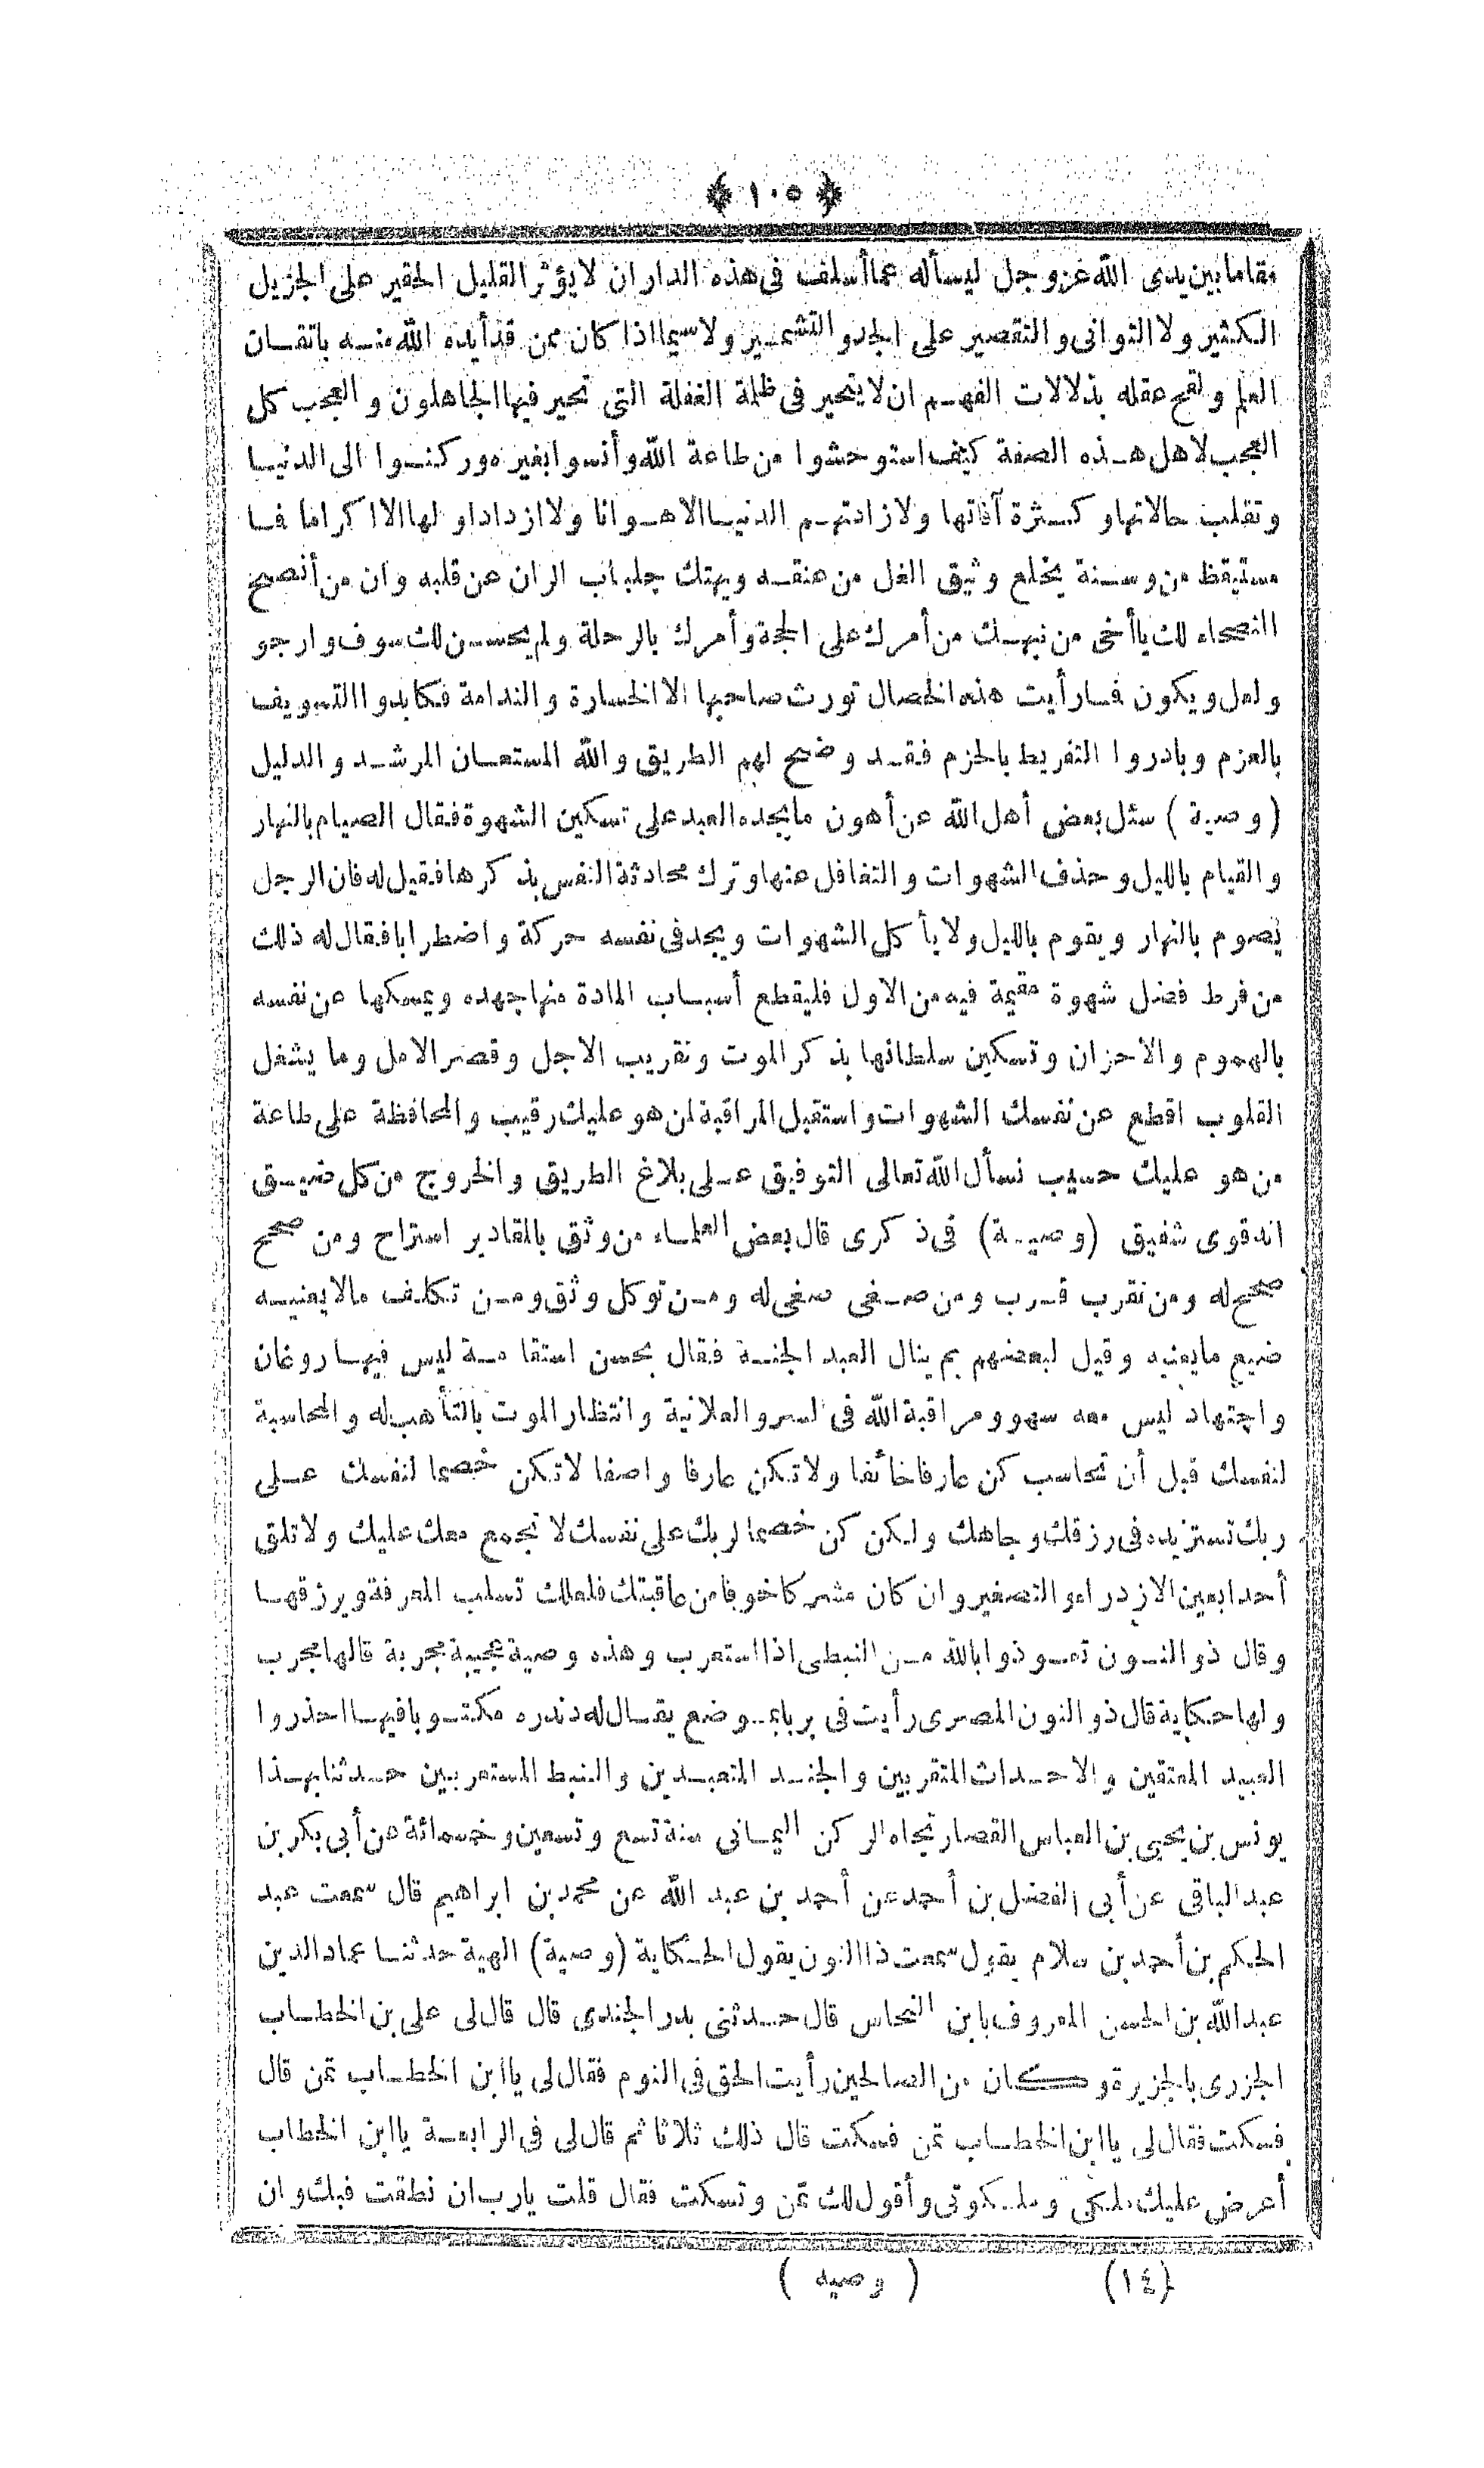 ﴿ ١٠٥ ﴾
مقاما بين يدى الله عز وجل ليسأله عما أسلف فى هذه الدار ان لا يؤثر القليل الحقير على الجزيل
الكثير ولا التوانى والتقصير على الجد والتشمير ولا سيما اذا كان ممن قد أيده الله منه باتقان
العلم ولقح عقله بدلالات الفهم ان لا يتحير فى ظلمة الغفلة التى تحير فيها الجاهلون والعجب كل
العجب لاهل هذه الصفة كيف استوحشوا من طاعة الله وأنسوا بغيره وركنوا الى الدنيا
وتقلب حالاتها وكثرة آفاتها ولا زادتهم الدنيا الا هوانا ولا ازدادوا لها الا اكراما فما
مستيقظ من وسنة يخلع وثيق الغل من عنقه ويهتك جلباب الران عن قلبه وان من أنصح
النصحاء لك يا أخى من نبهك من أمرك على الجدة وأمرك بالرحلة ولم يحسن لك سوف وارجو
ولعل ويكون فما رأيت هذه الخصال تورث صاحبها الا الخسارة والندامة فكابدوا التسويف
بالعزم وبادروا التفريط بالحزم فقد وضح لهم الطريق والله المستعان المرشد والدليل
(وصية) سئل بعض أهل الله عن أهون ما يجده العبد على تسكين الشهوة فقال الصيام بالنهار
والقيام بالليل وحذف الشهوات والتغافل عنها وترك محادثة النفس بذكرها فقيل له فان الرجل
يصوم بالنهار ويقوم بالليل ولا يأكل الشهوات ويجد فى نفسه حركة واضطرابا فقال له ذلك
من فرط فضل شهوة مقيمة فيه من الاول فليقطع أسباب المادة منها جهده ويمسكها عن نفسه
بالهموم والاحزان وتسكين سلطانها بذكر الموت وتقريب الاجل وقصر الامل وما يشغل
القلوب اقطع عن نفسك الشهوات واستقبل المراقبة لمن هو عليك رقيب والمحافظة على طاعة
من هو عليك حسيب نسأل الله تعالى التوفيق على بلاغ الطريق والخروج من كل ضيق
انه قوى شفيق (وصية) فى ذكرى قال بعض العلماء من وثق بالمقادير استراح ومن صحح
صحح له ومن تقرب قرب ومن صفى صفى له ومن توكل وثق ومن تكلف مالا يعنيه
ضيع ما يعنيه وقيل لبعضهم بم ينال العبد الجنة فقال بحسن استقامة ليس فيها روغان
واجتهاد ليس معه سهو ومراقبة الله فى السر والعلانية وانتظار الموت بالتأهب له والمحاسبة
لنفسك قبل أن تحاسب كن عارفا خائفا ولا تكن عارفا واصفا لا تكن خصما لنفسك على
ربك تستزيده فى رزقك وجاهك ولكن كن خصما لربك على نفسك لا تجمع معك عليك ولا تلق
أحدا بعين الازدراء والتصغير وان كان مشركا خوفا من عاقبتك فلعلك تسلب المعرفة ويرزقها
وقال ذو النون تعوذوا بالله من النبطى اذا استعرب وهذه وصية عجيبة مجربة قالها مجرب
ولها حكاية قال ذو النون المصرى رأيت فى بربا بموضع يقال له دندره مكتوبا فيها احذروا
العبيد المعتقين والاحداث المتقربين والجند المتعبدين والنبط المستعربين حدثنا بهذا
يونس بن يحيى بن العباس القصار تجاه الركن اليمانى سنة تسع وتسعين وخمسمائة عن أبى بكر بن
عبد الباقى عن أبى الفضل بن أحمد عن أحمد بن عبد الله عن محمد بن ابراهيم قال سمعت عبد
الحكم بن أحمد بن سلام يقول سمعت ذا النون يقول الحكاية (وصية) الهية حدثنا عماد الدين
عبد الله بن الحسن المعروف بابن النحاس قال حدثنى بدر الجندى قال قال لى على بن الخطاب
الجزرى بالجزيرة وكان من الصالحين رأيت الحق فى النوم فقال لى يا ابن الخطاب تمن قال
فسكت فقال لى يا ابن الخطاب تمن فسكت قال ذلك ثلاثا ثم قال لى فى الرابعة يا ابن الخطاب
أعرض عليك ملكى وملكوتى وأقول لك تمن وتسكت فقال قلت يارب ان نطقت فبك وان
(١٤) (وصيه)